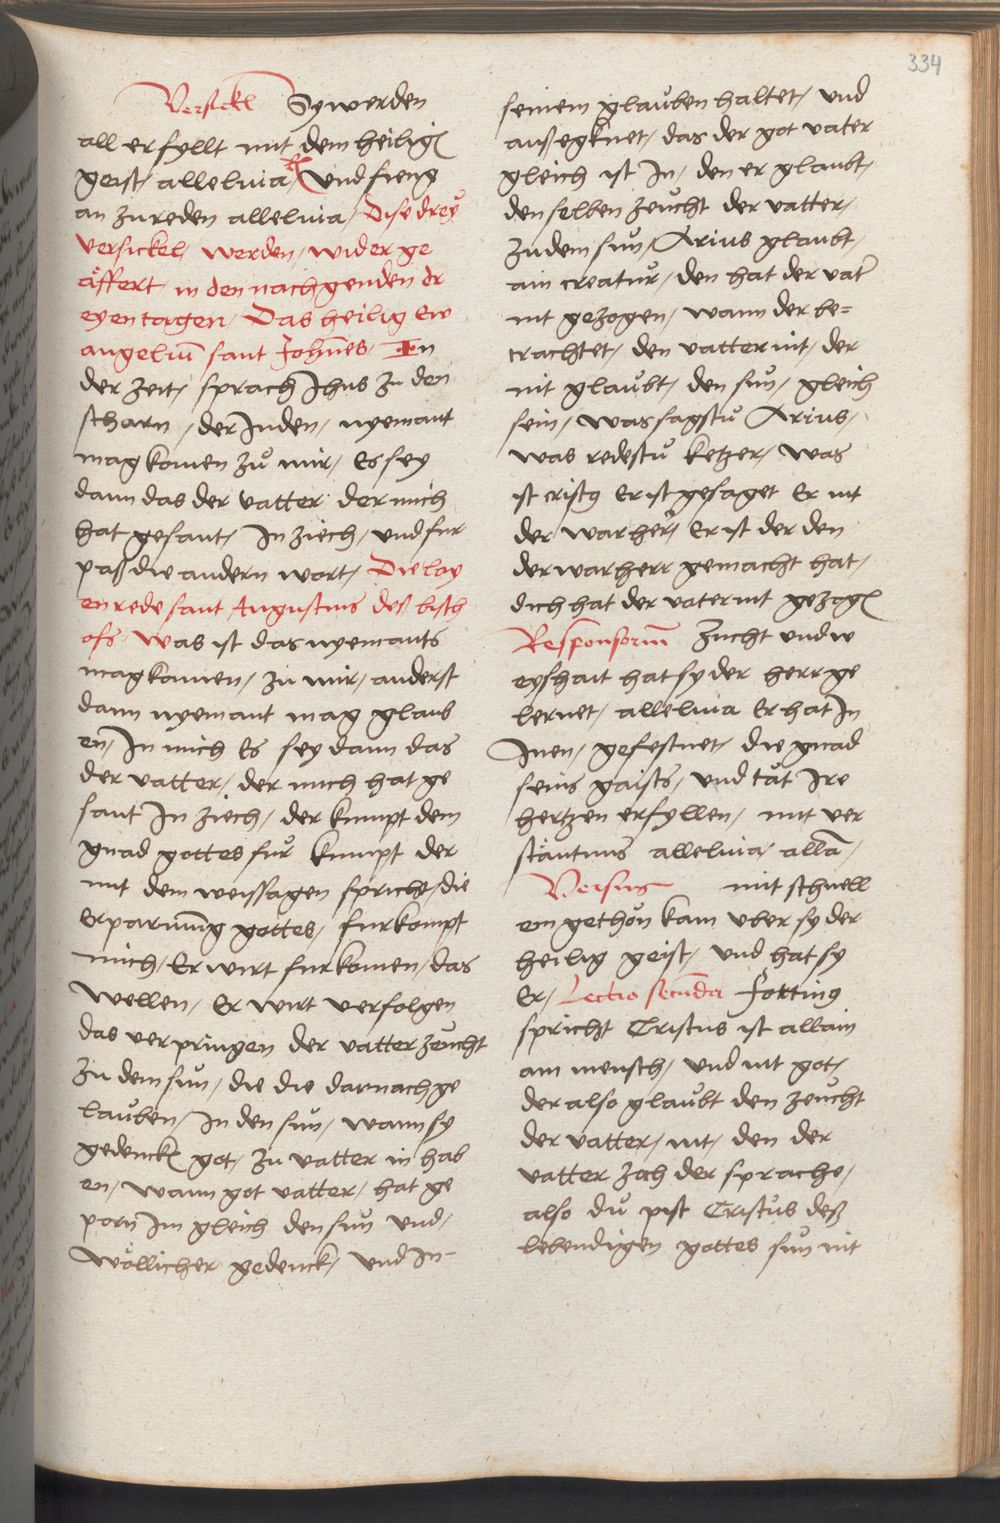 334
Versickl Sy werden
all erfyllt mit dem heilig(en)
geist / alleluia / vnd fieng
an zu reden alleluia / Dise dreÿ
versickel / werden / wider ge
äffert in den nachgenden dr
eyen tagen / Das heilig ew
angeliu(m) sant Joh(an)nes / In
der zeit / sprach Jhus zu den
scharn / der Juden / nyemant
mag komen zů mir / Es sey
dann das der vatter der mich
hat gesant / In ziech / vnd fur
paß die andern wort / Die lay
en rede sant Augustins des bisch
ofs Was ist das nyemants
mag komen / zu mir / anderst
dann nyemant mag glaub
en / In mich Es sey dann das
der vatter / der mich hat ge
sant In ziech / der kumpt dem
gnad gottes für kumpt der
mit dem weissagen spricht / die
Erparmu(n)g gottes / furkompt
mich / Er wirt furkomen / das
wellen / Er wirt verfolgen
das verpringen der vatter zeücht
zu dem sun / die die darnach ge
lauben / In den sun / wann sy
gedenck(en) got / zu vatter in hab
en / wann got vatter / hat ge
porn Im gleich den sun vnd /
wöllicher gedenck / vnd In
seinem glauben haltet / vnd
auß egknet / das der got vater
gleich ist In / den er glaubt /
den selben zeücht der vatter /
zu dem sun / Arius glaubt /
ain creatur / den hat der vat(er)
nit gezogen / wann der be=
trachtet / den vatter nit / der
nit glaubt / den sun / gleich
sein / was sagstu Arius /
was redestu ketzer / was
ist crist(us) Er ist gesaget Er nit
der war herr Er ist der den
der warherr gemacht hat /
dich hat der vater nit gezog(en)
Responsoriu(m) Zucht vnd w
eyshait hat sy der herr ge
lernet / alleluia Er hat In
Inen / gefestnet / die gnad
seins gaists / vnd tät Ire
hertzen erfyllen / mit ver
stäntnus alleluia / alla /
Versus mit schnell
em gethön kam vber sy der
heilig geist / vnd hat sy
Er / Lectio secu(n)da Fottin(us)
spricht Cristus ist allain
ain mensch / vnd nit got /
der also glaubt den zeücht
der vatter / nit / den der
vatter zoch der sprache /
also du pist Cristus deß
lebendigen gottes sun nit